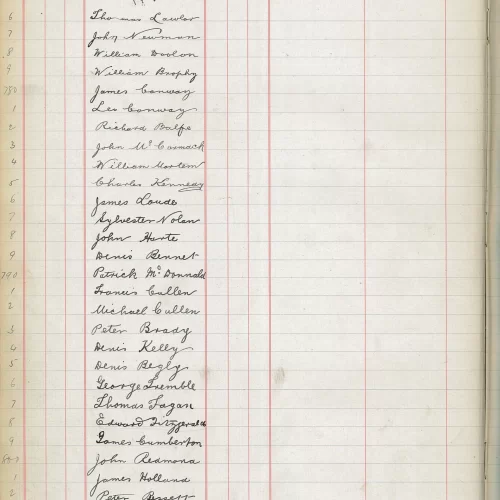 6 Thomas Lawlor
7 John Newman
8 William Doolon
9 William Brophy
780 James Conway
1 Leo Conway
2 Richard Balfe
3 John Mc Cormack
4 William Mortem
5 Charles Kennedy
6 James Loude
7 Sylvester Nolan
8 John Harte
9 Denis Bennet
790 Patrick Mc Donnald
1 Francis Cullen
2 Michael Cullen
3 Peter Brady
4 Denis Kelly
5 Denis Begly
6 George Tremble
7 Thomas Fagan
8 Edward Fitzgerald
9 James Cumberton
800 John Redmond
1 James Holland
2 Peter